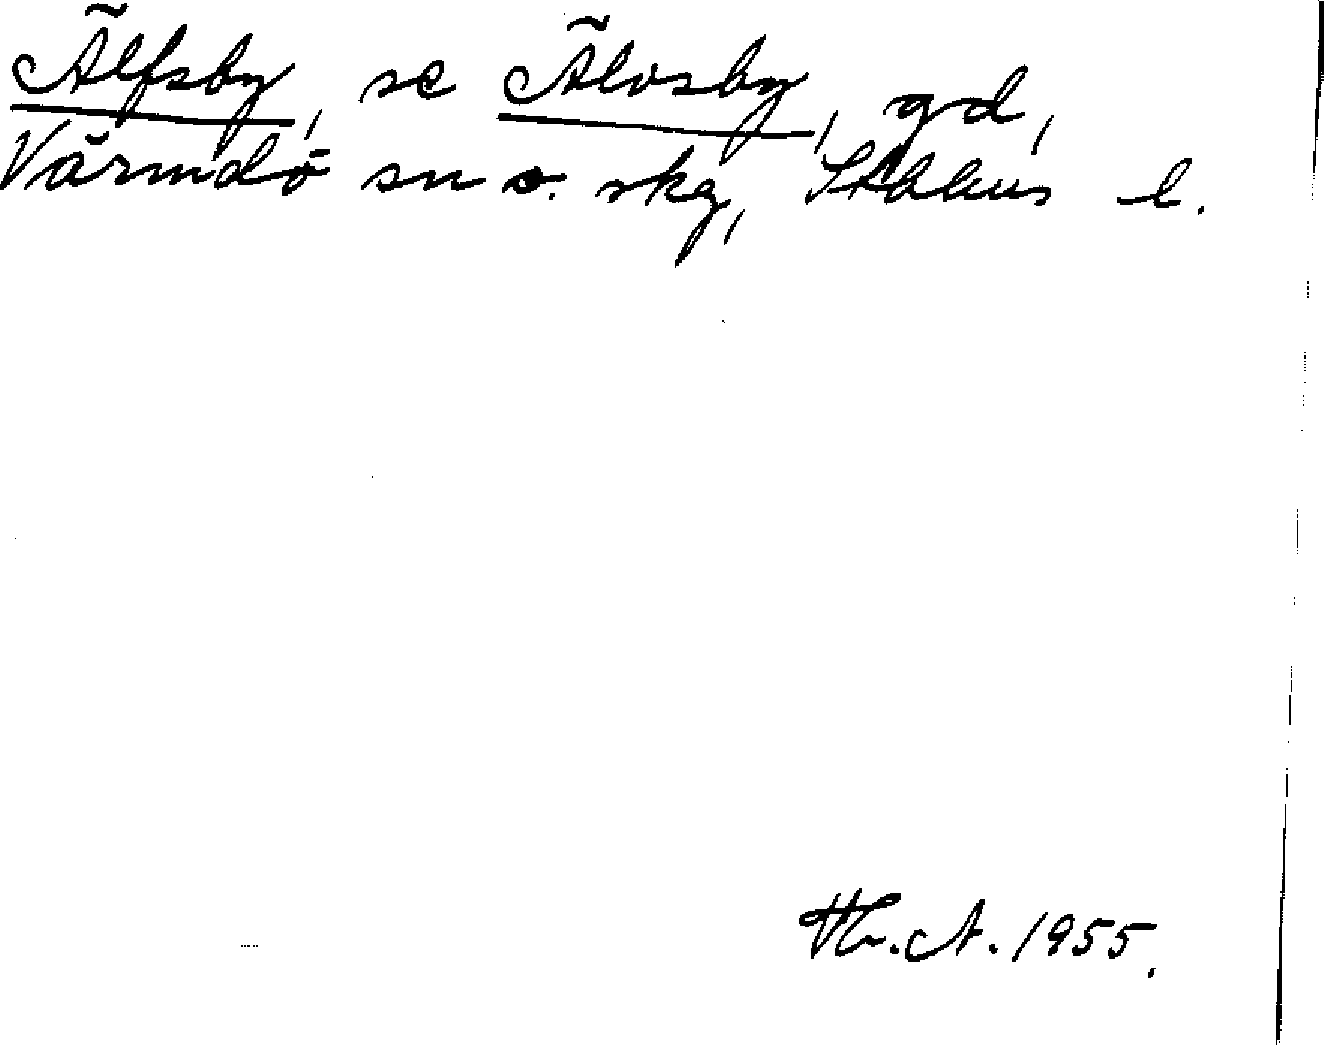 Älfsby, se Älvsby, gd,
Värmdö sn o. skg, Sthlms l.
Th. A. 1955.